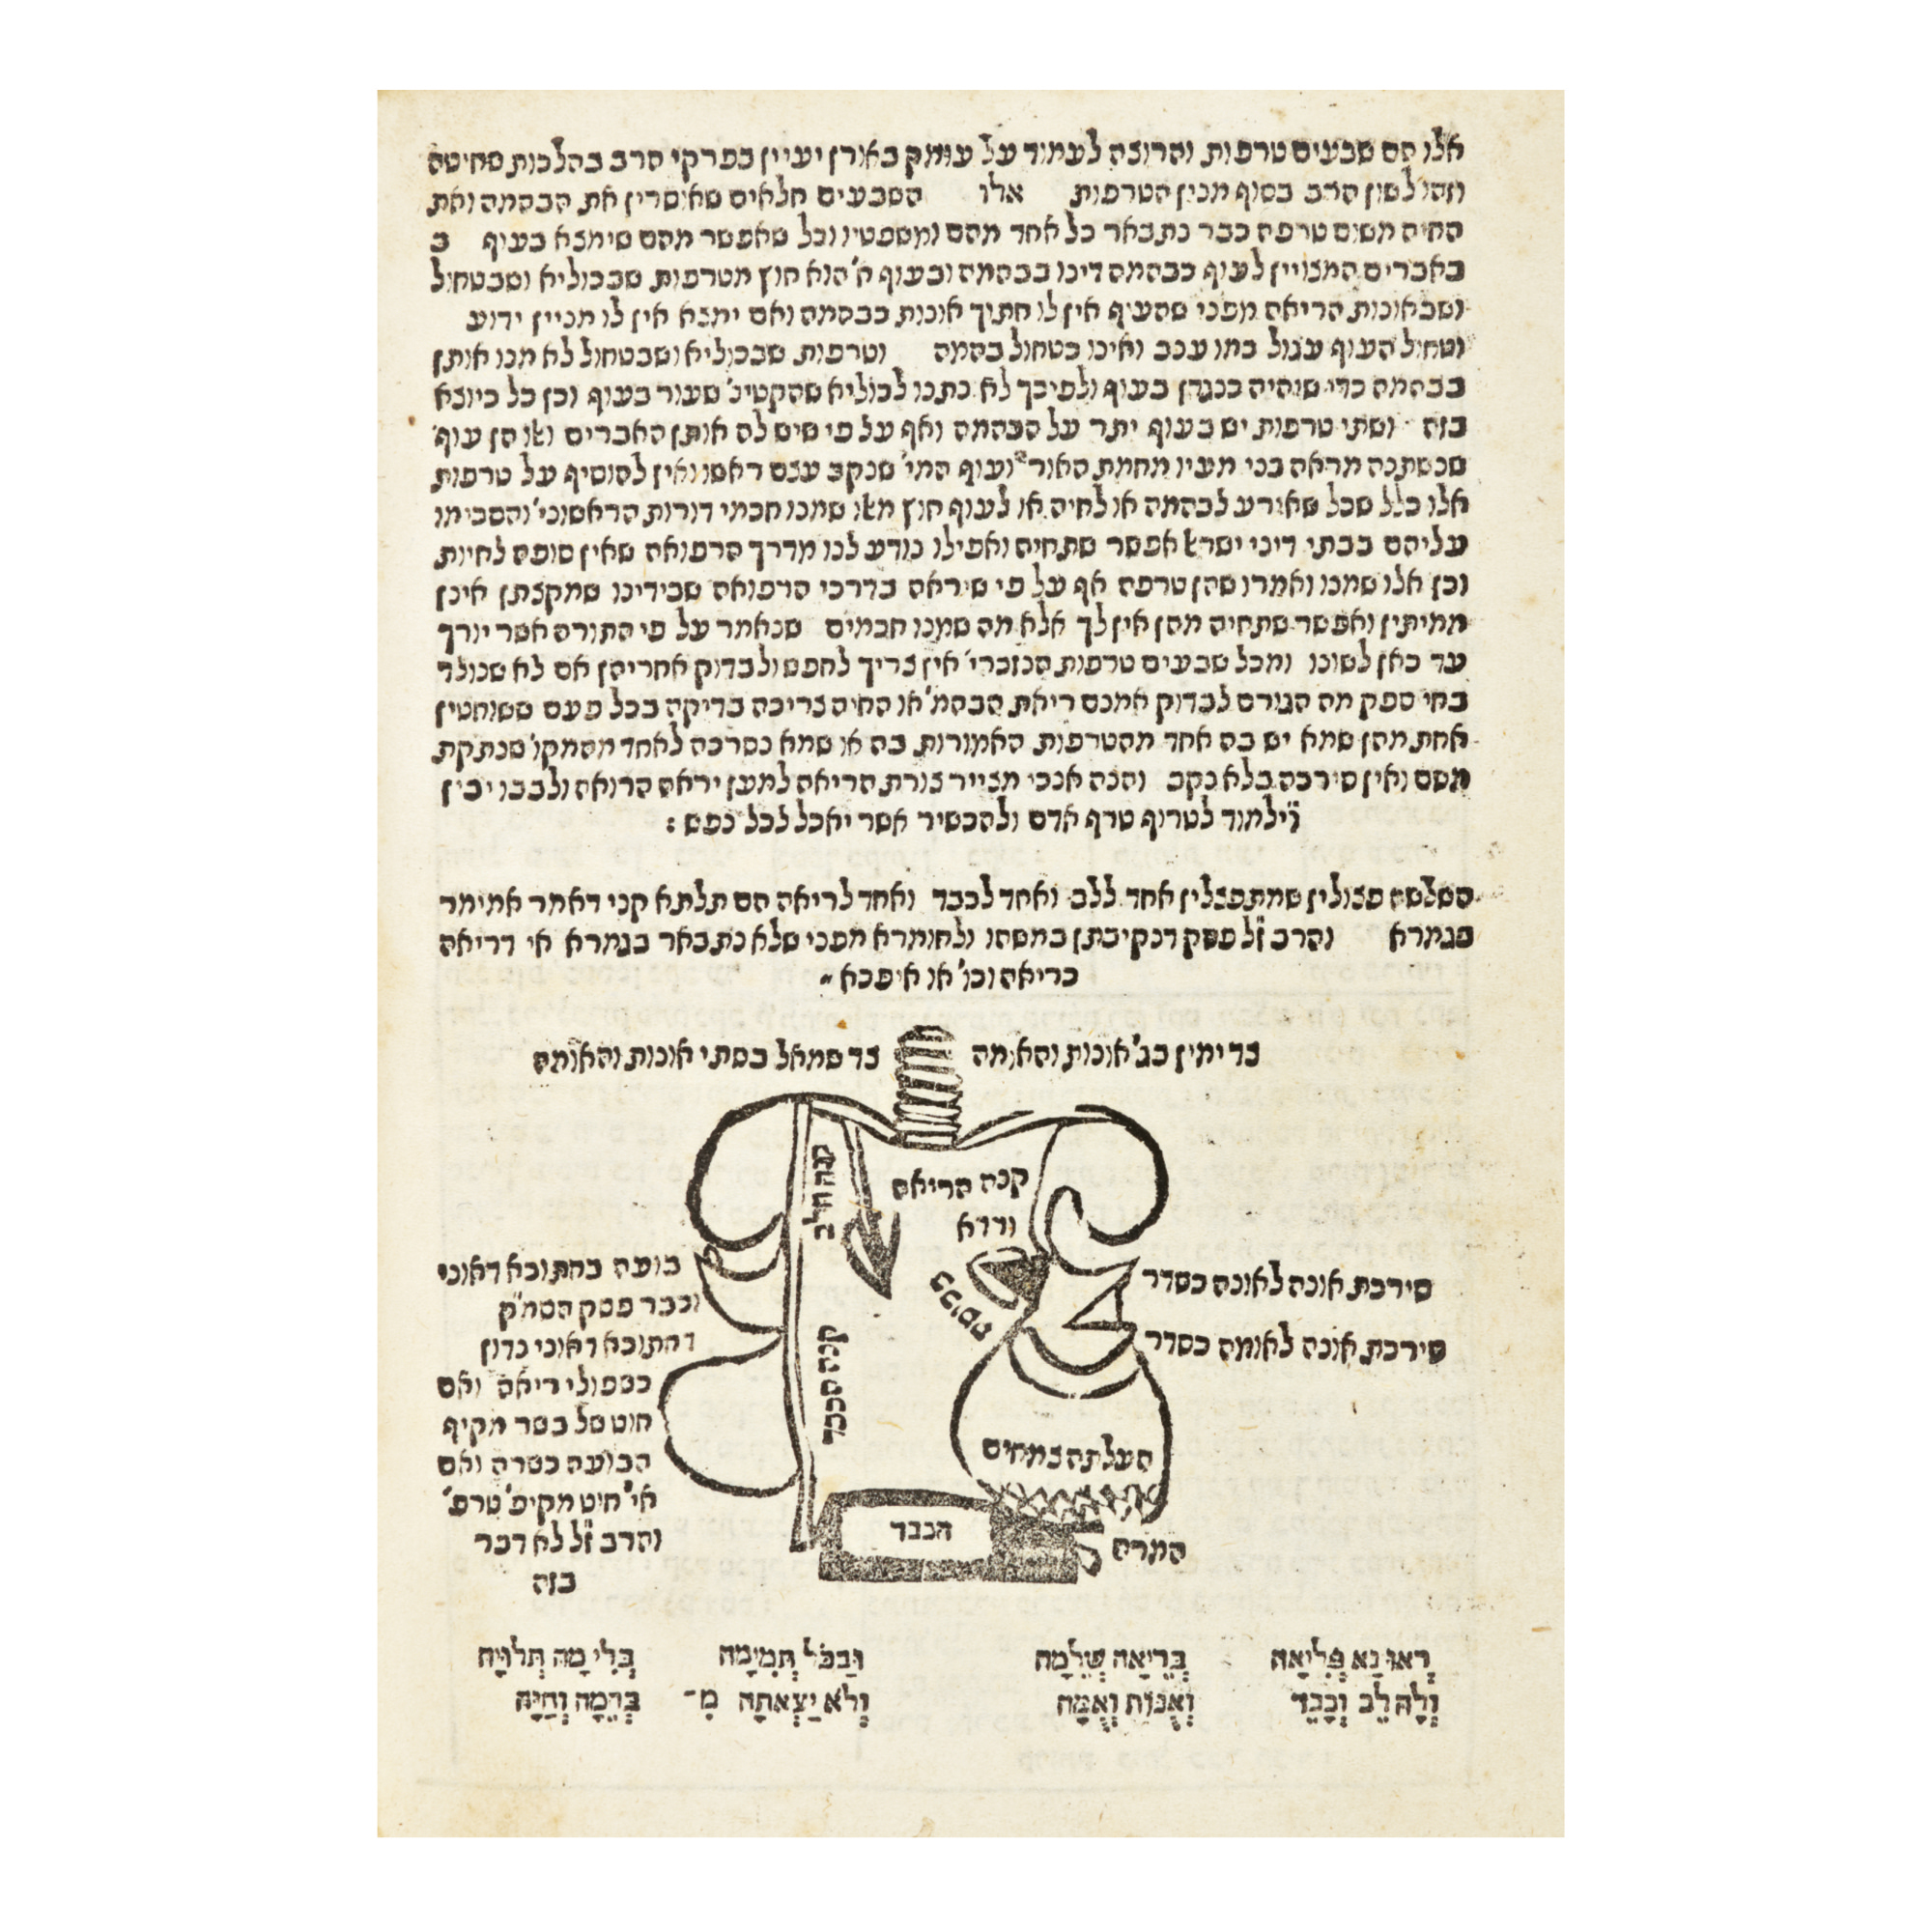 אלו הם שבעים טרפות והרוצה לעמוד על עומק באורן יעיין בפרקי הרב בהלכות שחיטה
וזהו לשון הרב בסוף מנין הטרפות אלו השבעים חלאים שאוסרין את הבהמה ואת
החיה משום טרפה כבר נתבאר כל אחד מהם ומשפטיו וכל שאפשר מהם שימצא בעוף ב
באברים המצויין לעוף כבהמה דינו בבהמה ובעוף א' הוא חוץ מטרפות שבכוליא ושבטחול
ושבאונות הריאה מפני שהעוף אין לו חתוך אונות כבהמה ואם ימצא אין לו מניין ידוע
וטחול העוף עגול כמו ענב ואינו כטחול בהמה וטרפות שבכוליא ושבטחול לא מנו אותן
בבהמה כדי שיהיה כנגדן בעוף ולפיכך לא נתנו לכוליא שהקטינ' שעור בעוף וכן כל כיוצא
בזה ושתי טרפות יש בעוף יתר על הבהמה ואף על פי שיש לה אותן האברים ואלו הן עוף
שנשתנה מראה בני מעיו מחמת האור ועוף המי' שנקב עצם ראשו ואין להוסיף על טרפות
אלו כלל שכל שאירע לבהמה או לחיה או לעוף חוץ מאלו שמנו חכמי דורות הראשוני' והסכימו
עליהם בבתי דיני ישראל אפשר שתחיה ואפילו נודע לנו מדרך הרפואה שאין סופה לחיות
וכן אלו שמנו ואמרו שהן טרפה אף על פי שיראה בדרכי הרפואה שבידינו שמקצתן אינן
ממיתין ואפשר שתחיה מהן אין לך אלא מה שמנו חכמים שנאמר על פי התורה אשר יורך
עד כאן לשונו ומכל שבעים טרפות הנזכרי' אין צריך לחפש ולבדוק אחריהן אם לא שנולד
בהי ספק מה הגורם לבדוק אמנם ריאת הבהמ' או החיה צריכה בדיקה בכל פעם ששוחטין
אחת מהן שמא יש בה אחד מהטרפות האמורות בה או שמא נסרכה לאחד מהמקו' שנתקת
משם ואין סירכה בלא נקב והנה אנכי מצייר צורת הריאה למען יראה הרואה ולבבו יבין
וילמוד לטרוף טרף אדם ולהכשיר אשר יאכל לכל נפש :
השלשה פצולין שמתפצלין אחד ללב ואחד לכבד ואחד לריאה הם תלתא קני דאמר אמימר
בגמרא והרב ז"ל פסק דנקיבתן במשהו ולחומרא מפני שלא נתבאר בגמרא אי דריאה
כריאה וכו' או איפכא
צד ימין בג' אונות והאומה
צד שמאל בשתי אונות והאומה
קנה הלב
קנה הריאה
וורדא
בכיסה
קנה הכבד
סירכת אונה לאונה כסדר
סירכת אונה לאומה כסדר
בועה בחתוכא דאוני
וכבר פסק הסמ"ק
דחתוכא דאוני נדון
כשפולי ריאה ואם
חוט של בשר מקיף
הבועה כשרה ואם
אי' חוט מקיפ' טרפ'
והרב ז"ל לא דבר
בזה
העלתה צמחים
הכבד
המרה
רְאוּ נָא פְּלִיאָה בְּרֵיאָה שְׁלֵמָה וּבַכֹּל תְּמִימָה בְּלִי מָה תְּלוּיָה
וְלָהּ לֵב וְכָבֵד וְאֻנּוֹת וְאֻמָּה וְלֹא יַצְאָתָה מָ־ בְּרֵמָה וְחַיָּה